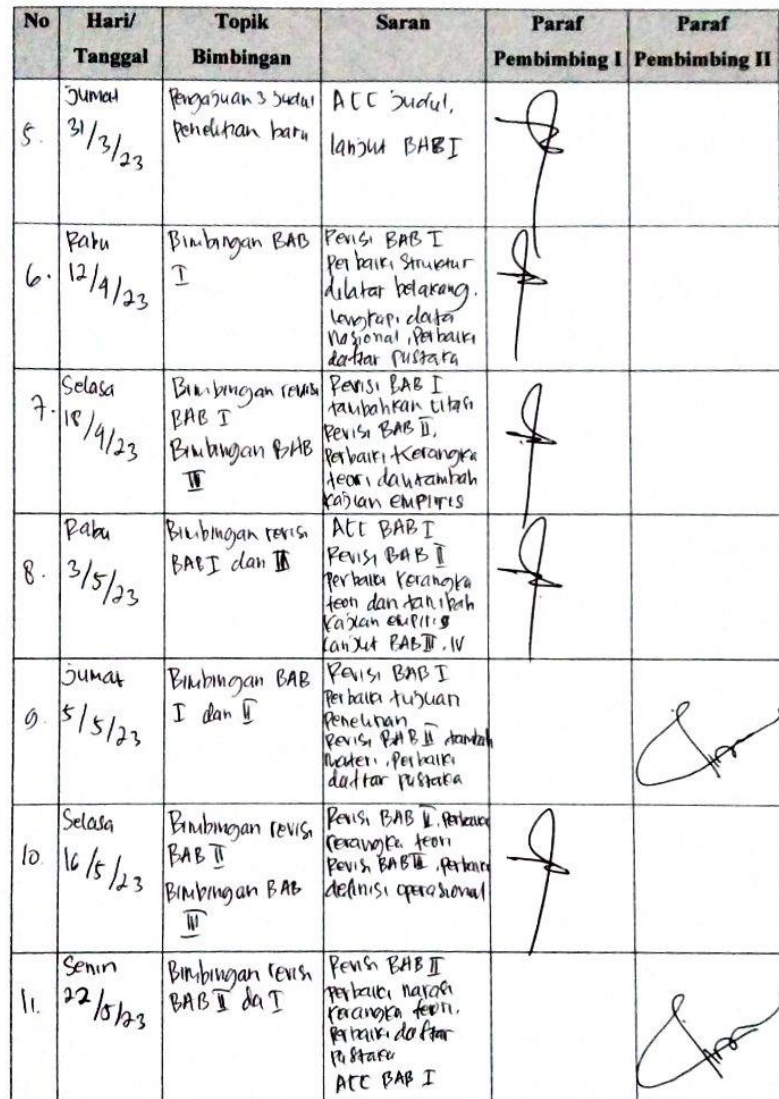 No Hari/ Topik Saran Paraf Paraf
Tanggal Bimbingan Pembimbing I Pembimbing II
5. Jumat
31/3/23
Pengajuan 3 Judul
Penelitian baru
ACC Judul,
lanjut BAB I
6. Rabu
12/4/23
Bimbingan BAB
I
Revisi BAB I
Perbaiki Struktur
dilatar belakang.
lengkapi data
nasional, Perbaiki
daftar pustaka
7. Selasa
18/4/23
Bimbingan revisi
BAB I
Bimbingan BAB
II
Revisi BAB I
tambahkan citasi
Revisi BAB II,
Perbaiki Kerangka
teori dan tambah
kajian empiris
8. Rabu
3/5/23
Bimbingan revisi
BAB I dan II
ACC BAB I
Revisi BAB II
Perbaiki kerangka
teori dan tambah
kajian empiris
lanjut BAB III, IV
9. Jumat
5/5/23
Bimbingan BAB
I dan II
Revisi BAB I
Perbaiki tujuan
Penelitian
Revisi BAB II tambah
materi, Perbaiki
daftar pustaka
10. Selasa
16/5/23
Bimbingan revisi
BAB II
Bimbingan BAB
III
Revisi BAB II, Perbaiki
kerangka teori
Revisi BAB III, Perbaiki
definisi operasional
11. Senin
22/5/23
Bimbingan revisi
BAB II da I
Revisi BAB II
perbaiki narasi
kerangka teori,
Perbaiki daftar
Pustaka
ACC BAB I